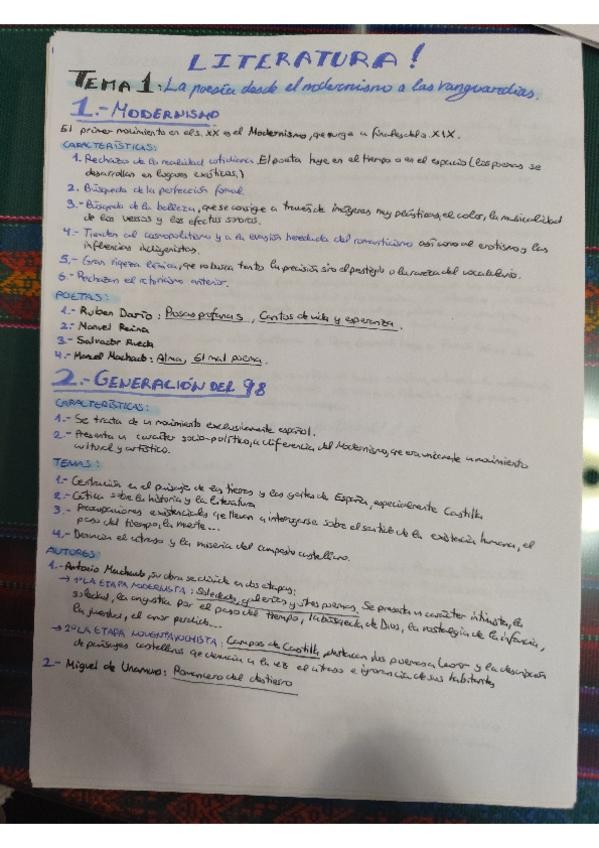 LITERATURA!
TEMA 1: La poesía desde el modernismo a las vanguardias.
1.- MODERNISMO
El primer movimiento en el s. XX es el Modernismo, que surge a finales del s. XIX.
CARACTERÍSTICAS:
1. Rechazo de la realidad cotidiana. El poeta huye en el tiempo o en el espacio (los poemas se
desarrollan en lugares exóticos.)
2. Búsqueda de la perfección formal.
3.- Búsqueda de la belleza, que se consigue a través de imágenes muy plásticas, el color, la musicalidad
de los versos y los efectos sonoros.
4.- Tienden al cosmopolitismo y a la evasión heredada del romanticismo así como al erotismo y las
influencias indigenistas.
5.- Gran riqueza léxica, que no busca tanto la precisión sino el prestigio o la rareza del vocabulario.
6.- Rechazan el retoricismo anterior.
POETAS:
1.- Ruben Darío: Prosas profanas, Cantos de vida y esperanza.
2.- Manuel Reina
3.- Salvador Rueda
4.- Manuel Machado: Alma, El mal poema.
2.- GENERACIÓN DEL 98
CARACTERÍSTICAS:
1.- Se trata de un movimiento exclusivamente español.
2.- Presenta un carácter socio-político, a diferencia del Modernismo, que era unicamente un movimiento
cultural y artístico.
TEMAS:
1.- Centración en el paisaje de las tierras y las gentes de España, especialmente Castilla
2.- Crítica sobre la historia y la literatura
3.- Preocupaciones existenciales que llevan a interrogarse sobre el sentido de la existencia humana, el
paso del tiempo, la muerte...
4.- Denuncian el atraso y la miseria del campesino castellano.
AUTORES:
1.- Antonio Machado, su obra se divide en dos etapas:
→ 1ª LA ETAPA MODERNISTA: Soledades, galerías y otros poemas. Se presenta un carácter intimista, la
soledad, la angustia por el paso del tiempo, la búsqueda de Dios, la nostalgia de la infancia,
la juventud, el amor perdido...
→ 2ª LA ETAPA NOVENTAYOCHISTA: Campos de Castilla, destacan dos poemas a Leonor y la descripción
de paisajes castellanos que denuncian a la vez el atraso e ignorancia de sus habitantes
2.- Miguel de Unamuno: Romancero del destierro